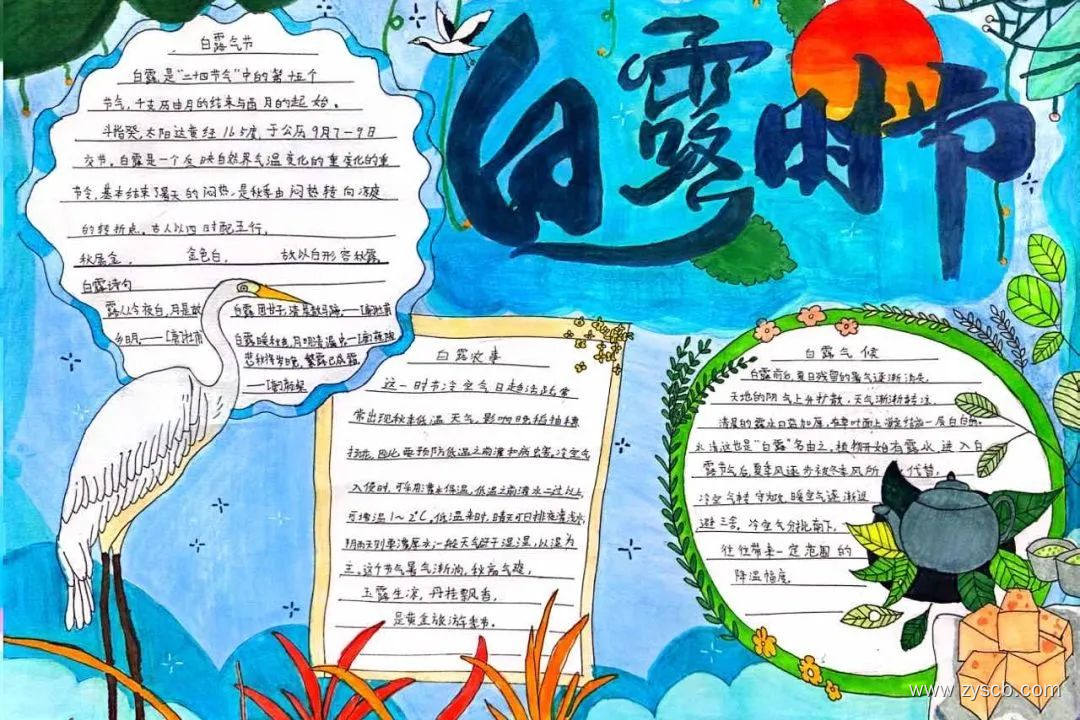 白露时节
白露气节
白露是"二十四节气"中的第十五个
节气,干支历申月的结束与酉月的起始。
斗指癸,太阳达黄经165度,于公历9月7-9日
交节。白露是一个反映自然界气温变化的重变化的重
节令,基本结束了暑天的闷热,是秋季由闷热转向凉爽
的转折点。古人以四时配五行,
秋属金, 金色白, 故以白形容秋露。
白露诗句
露从今夜白,月是故
乡明。——[唐]杜甫
白露团甘子,清晨散马蹄——[唐]杜甫
悲秋将岁晚,繁露已成霜
白露故事
这一时节冷空气日趋活跃常
常出现秋季低温天气,影响晚稻抽穗
扬花,因此要预防低温
入侵时,可采用灌水保温,低温之前灌水二过以上
可增温1~2℃。低温来时,晴天可日排夜灌浅水,
主。这个节气暑气渐消,秋高气爽,
玉露生凉,丹桂飘香,
是黄金旅游季节。
白露气候
白露前后,夏日残留的暑气逐渐消失,
天地的阴气上升扩散,天气渐渐转凉,
清晨的露水日益加厚,在草叶面上凝结成一层白白的
水滴这也是"白露"名由之。植物开始有露水,进入白
露节气后,夏季风逐步被冬季风所代替,
冷空气转守为攻,暖空气逐渐退
避三舍。冷空气分批南下,
往往带来一定范围的
降温幅度。
www.zyscb.com